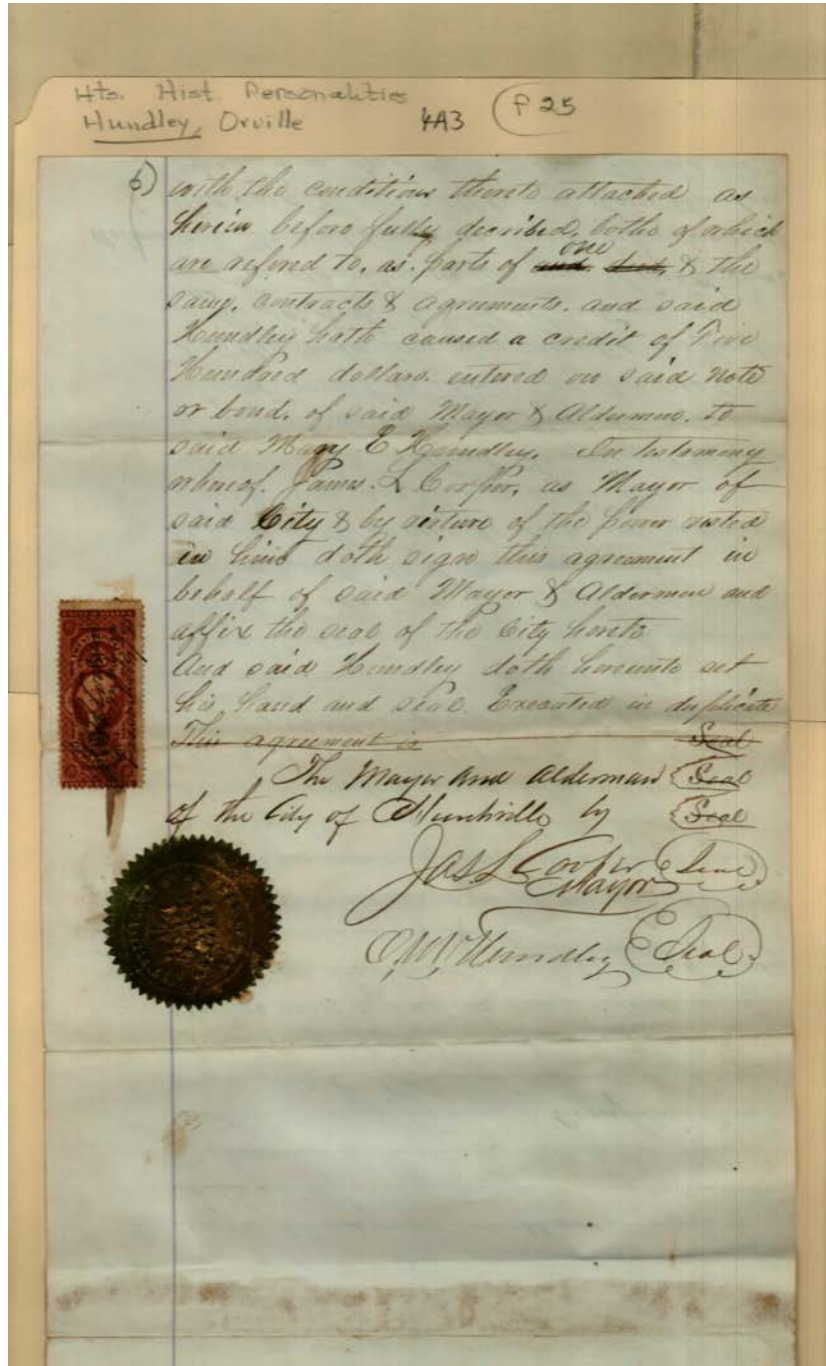 Hts. Hist. Personalities
Hundley, Orville 4A3 P 25
6) with the conditions thereto attached as
herein before fully decribed, boths of which
are refered to, as. parts of one and deed, & the
same, contracts & agreements. and said
Hundley hath caused a credit of Five
Hundred dollars. entered on said note
or bond. of said Mayor & Aldermen. to
said Mary E Hundley. In testimony
whereof. James. L Cooper, as Mayor of
said City & by virture of the power vested
in him doth sign this agreement in
behalf of said Mayor & Aldermen and
affix the seal of the City hereto
And said Hundley doth hereunto set
his hand and seal. Executed in duplicate
This agreement is Seal
The Mayor and Alderman Seal
of the City of Huntsville by Seal
Jas L Cooper Seal
Mayor
O.M. Hundley Seal